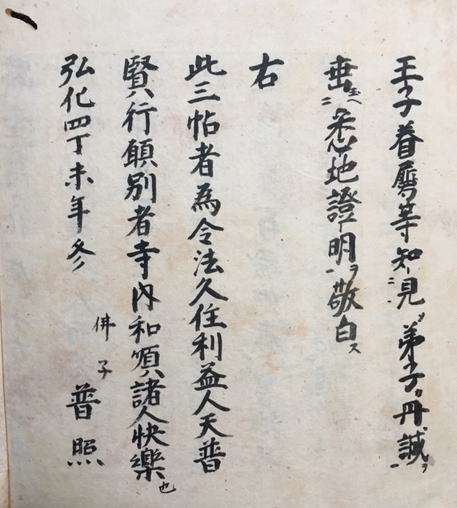 王子眷屬等知見弟子丹誠ヲ
垂玉ヘ悉地證明ヲ敬白ス
右
此三帖者為令法久住利益人天普
賢行願別者寺内和順諸人快樂也
弘化四丁未年冬 佛子 普照